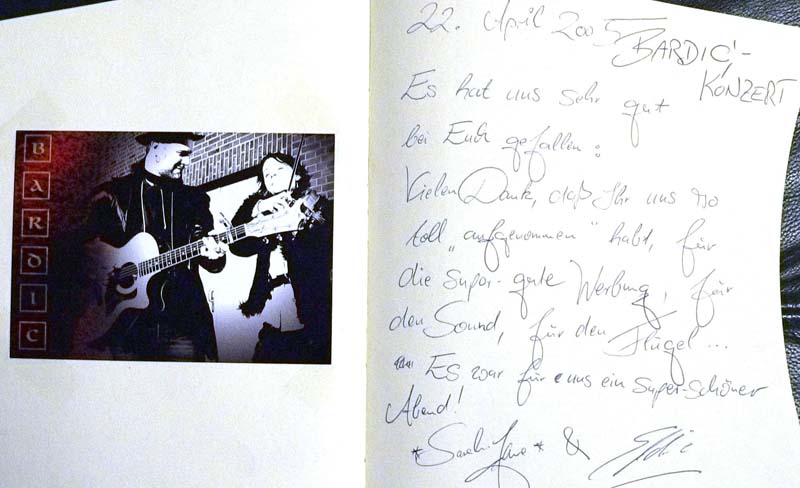 BARDIC
22. April 2005
BARDIC-
KONZERT
Es hat uns sehr gut
bei Euch gefallen:
Vielen Dank, daß Ihr uns so
toll „aufgenommen" habt, für
die super-gute Werbung, für
den Sound, für den Flügel...
Es war für uns ein super-schöner
Abend!
*Sarah Jane* &